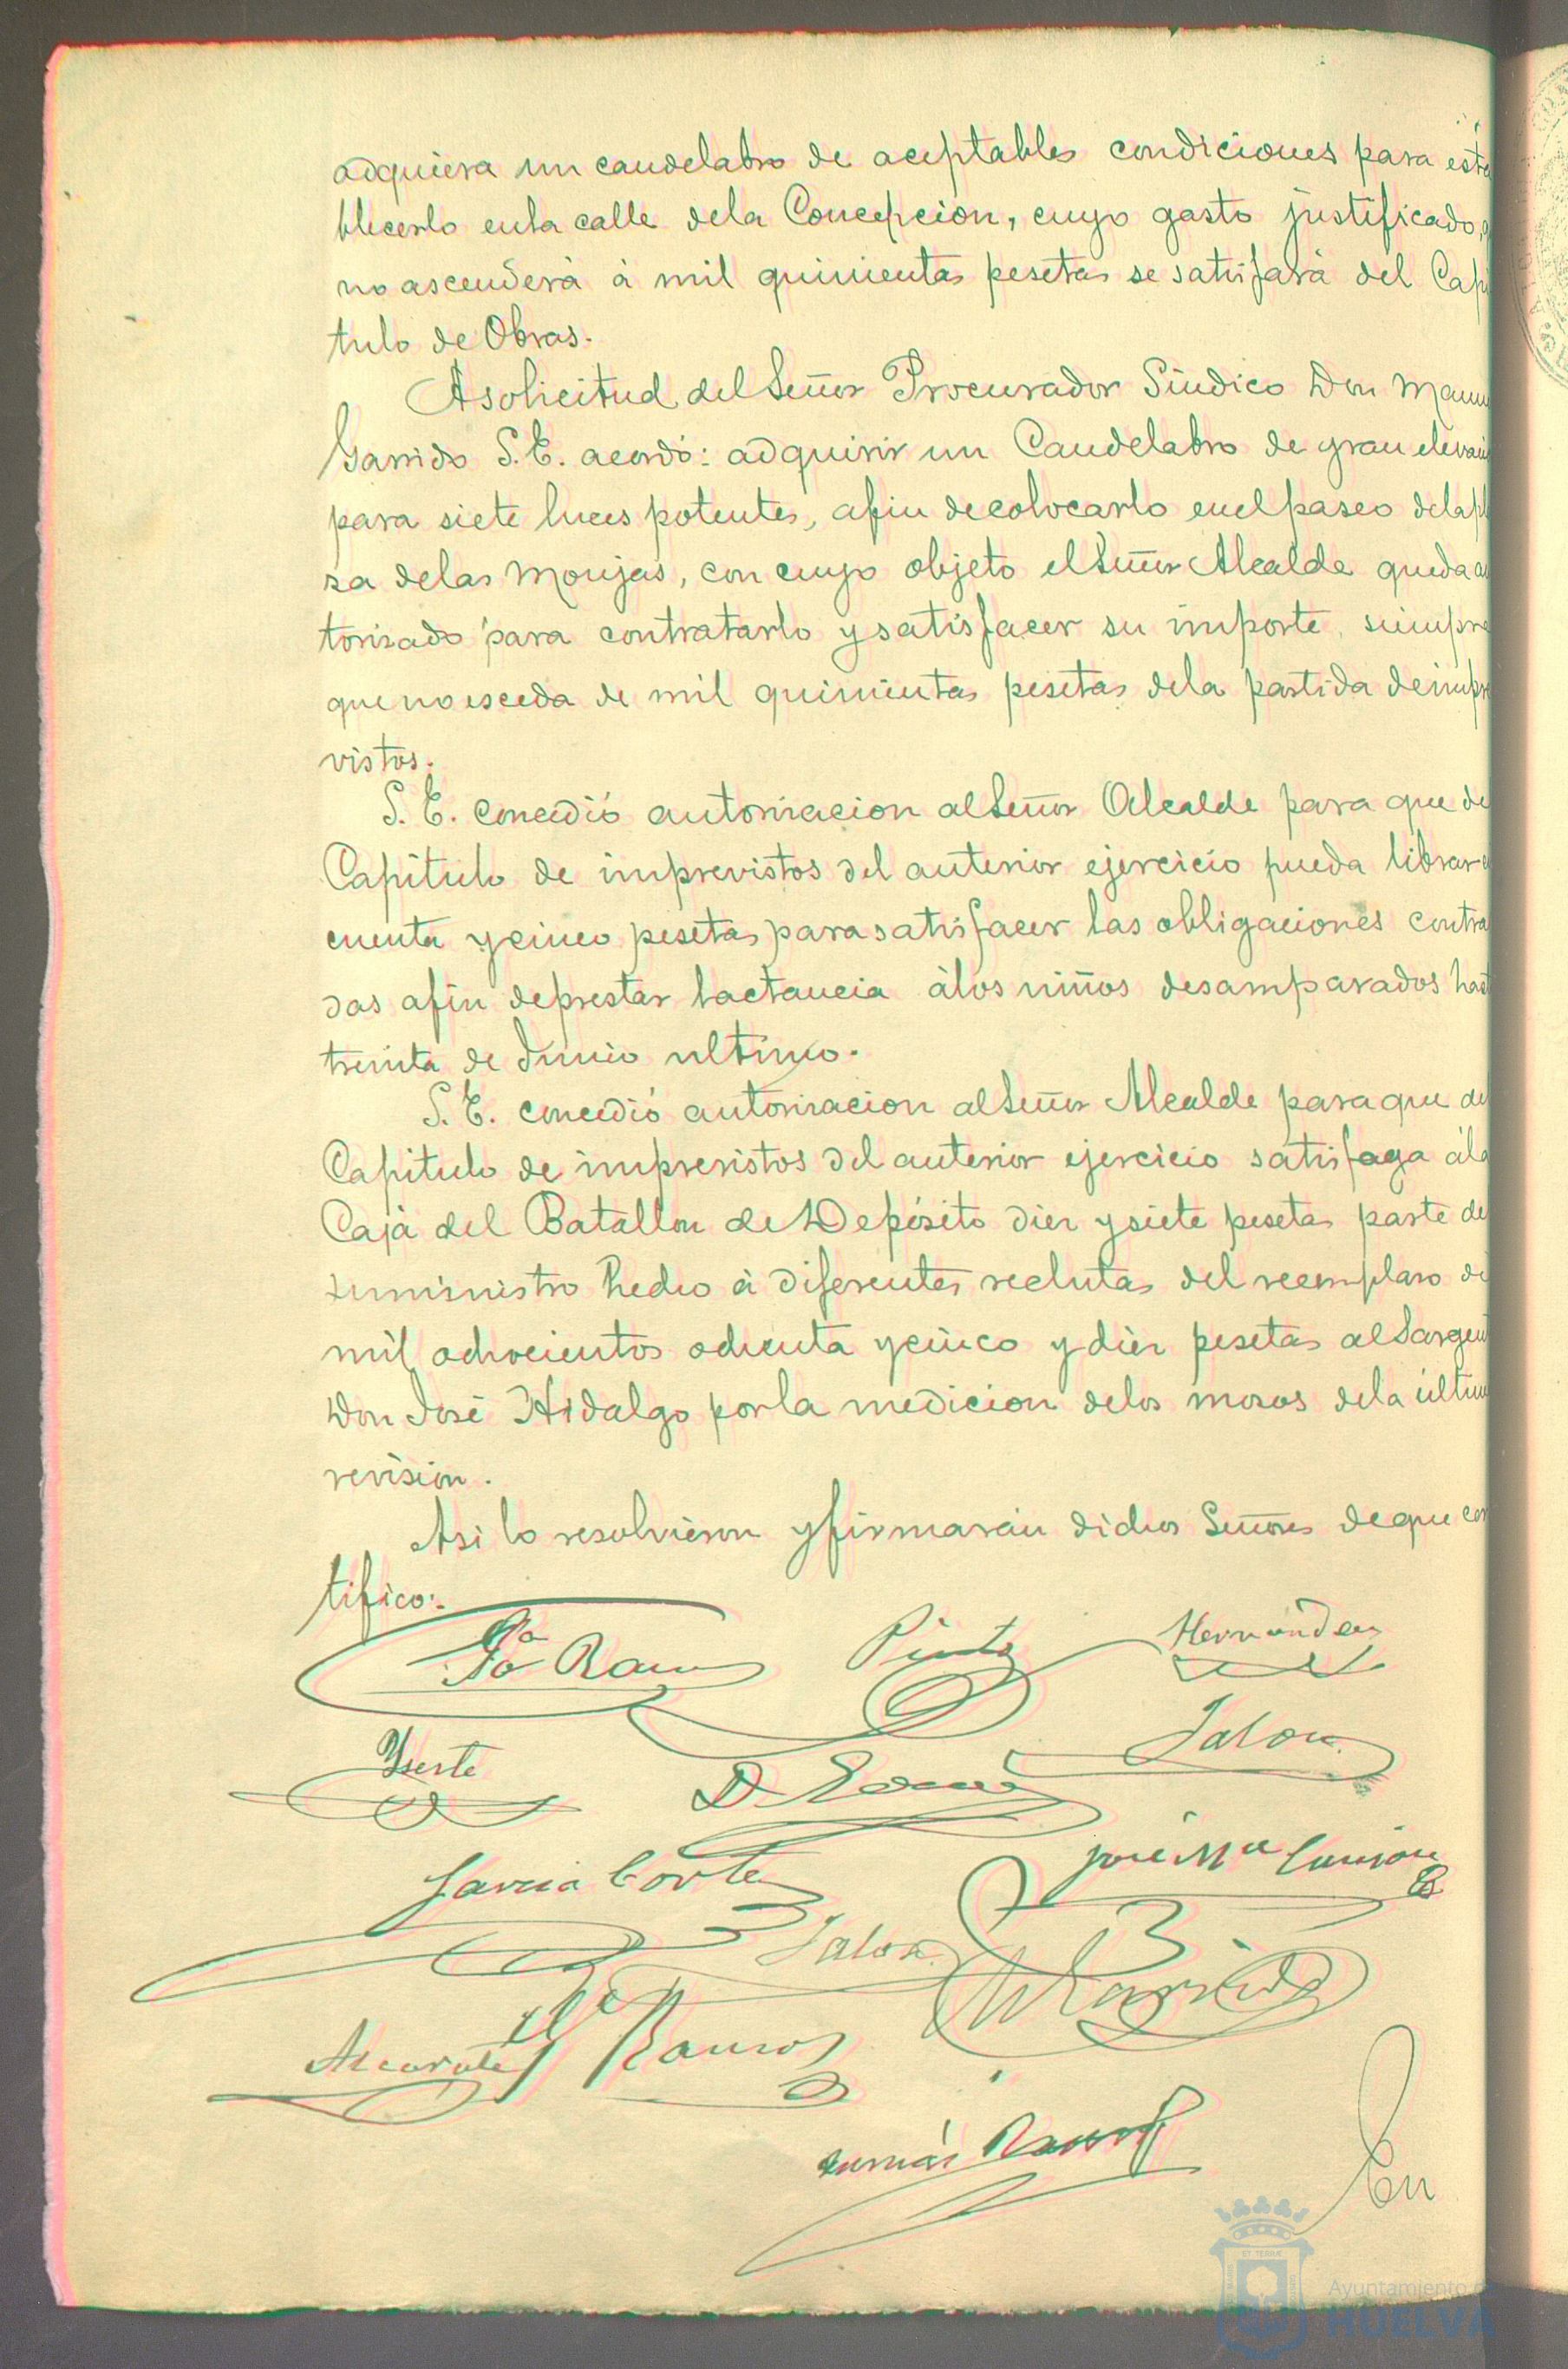 adquiera un candelabro de aceptables condiciones para esta
blecerlo enla calle dela Concepcion, cuyo gasto justificado, q
no ascenderá á mil quinientas pesetas se satisfará del Capi
tulo de Obras.
A solicitud del Señor Procurador Síndico Don Manu
Garrido S.E. acordó: adquirir un Candelabro de gran elevaci
para siete luces potentes, afin decolocarlo enel paseo dela pl
za delas Monjas, con cuyo objeto el Señor Alcalde queda au
torizado para contratarlo y satisfacer su importe, siempre
que no esceda de mil quinientas pesetas dela partida deimpre
vistos.
S. E. concedió autorizacion al Señor Alcalde para que de
Capítulo de imprevistos del anterior ejercicio pueda librar
cuenta y cinco pesetas para satisfacer las obligaciones contra
das afin deprestar lactancia álos niños desamparados hast
treinta de Junio ultimo.
S. E. concedió autorizacion al Señor Alcalde para que de
Capitulo de imprevistos del anterior ejercicio satisfaga ála
Caja del Batallon de Depósito diez y siete pesetas parte de
suministro hecho á diferentes reclutas del reemplazo de
mil ochocientos ochenta y cinco y diez pesetas al Sargent
Don José Hidalgo por la medicion delos mozos dela últim
revision.
Asi lo resolvieron y firmarán dichos Señores deque cer
tifico:.
Pinto Hernández
Jalon
Garcia Cortes José Mª
Jalon
M Garrido
Ramos
Tomás
En
Ayuntamiento d
HUELVA